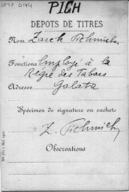 PICH
DÉPOTS DE TITRES
Nom Zareh Pichmich
Fonctions Employé à la
Régie des Tabacs
Adresse Galata
Spécimen de signature ou cachet
Z. Pichmich
Observations